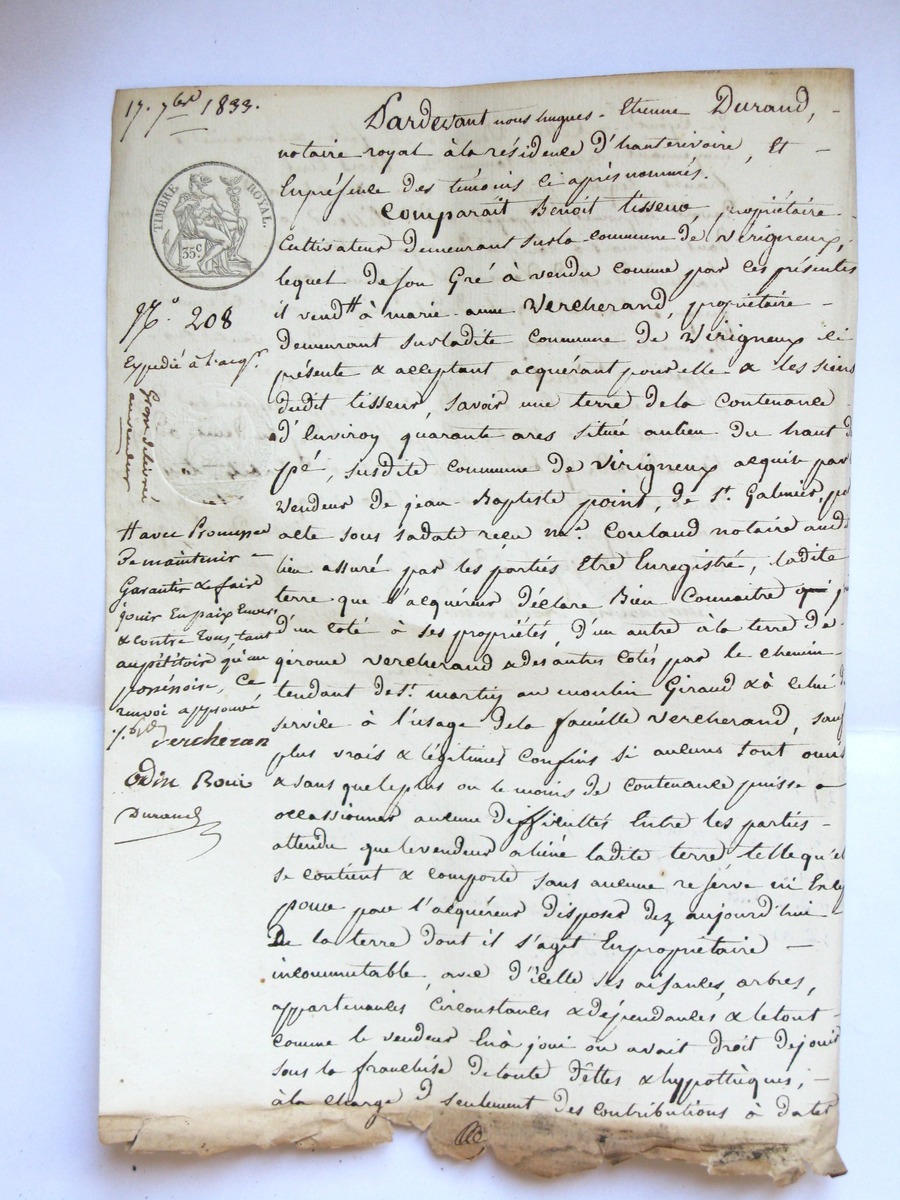 17. 7bre 1833.
TIMBRE ROYAL.
35 c.
N.o 208
Expédié à l'acqr
Grosse délivré
au vendeur
# avec Promesse
De maintenir
Garantir & faire
jouir En paix Envers
& contre Tous, tant
au pétitoire qu'au
possessoire, Ce
renvoi approuvé
Vercheran
Odin Rouis
Durand
Pardevant nous hugues-Etienne Durand,
notaire royal à la résidence d'hauterivoire, Et
En présence des témoins ci après nommés.
Comparait Benoit tisseur, propriétaire
Cultivateur demeurant sur la commune de Virigneux,
lequel de son Gré à vendu comme par ces présentes
il vend # à marie-anne Vercherand, propriétaire
demeurant sur ladite commune de Virigneux ci
présente & acceptant acquérant pour elle & les siens
dudit tisseur, savoir une terre de la contenance
d'Environ quarante ares située au lieu du haut
pé, susdite commune de Virigneux acquise par
Vendeur de jean-Baptiste point, de St. Galmier, par
acte sous sa date reçu me. Couland notaire audt
lieu assuré par les parties Etre Enregistré, ladite
terre que l'acquéreur déclare Bien Connaitre
d'un coté à ses propriétés, d'un autre à la terre de
gérome Vercherand & des autres cotés par le chemin
tendant de St. martin au moulin Giraud & à celui de
servile à l'usage de la famille Vercherand, sauf
plus vrais & légitimes Confins si aucuns sont omis
& sans que le plus ou le moins de contenance puisse
occassionner aucune difficultés Entre les parties
attendu que le vendeur aliéné ladite terre telle qu'elle
se contient & comporte sans aucune reserve ni
pour par l'acquéreur disposer dez aujourd'hui
De la terre dont il s'agit En propriétaire
incommutable, avec d'icelle ses aisances, arbres,
appartenances, Circonstances & dépendances & le tout
comme le vendeur En à joui ou avait droit de jouir
sous la franchise de toute dettes & hypothèques,
à la charge seulement des contributions à dater